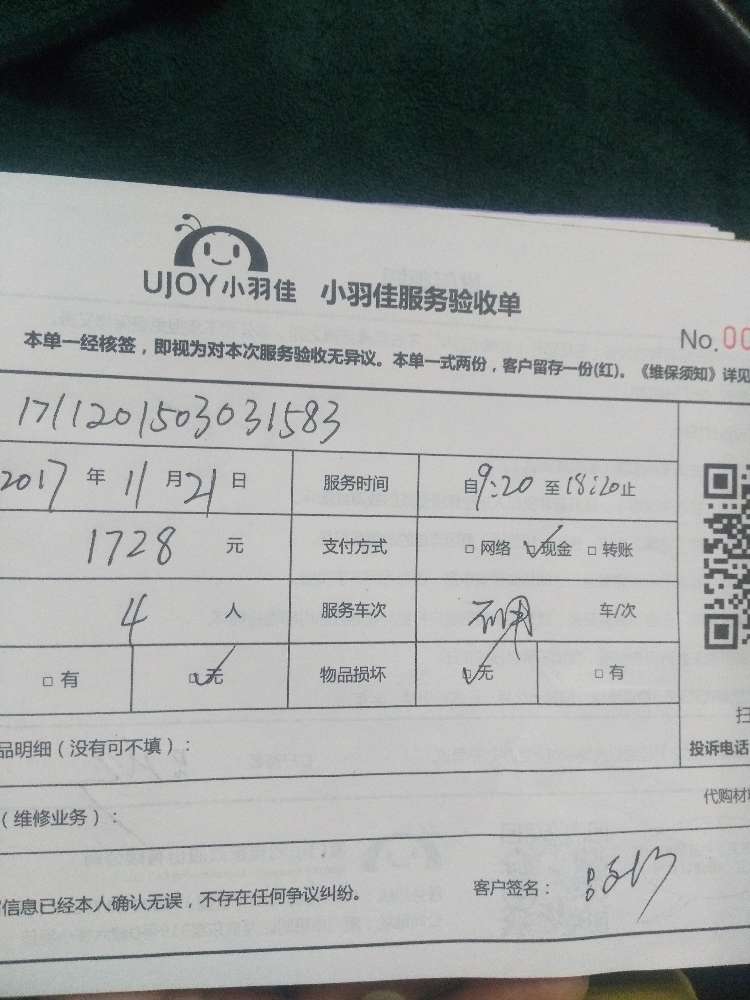 UJOY小羽佳 小羽佳服务验收单
No.00
本单一经核签，即视为对本次服务验收无异议。本单一式两份，客户留存一份(红)。《维保须知》详见
1711201503031583
2017 年 11 月 21 日 服务时间 自 9:20 至 18:20 止
1728 元 支付方式 □ 网络 □ 现金 □ 转账
4 人 服务车次 车/次
□ 有 □ 无 物品损坏 □ 无 □ 有
扫
品明细（没有可不填）：
投诉电话
代购材料
（维修业务）：
信息已经本人确认无误，不存在任何争议纠纷。 客户签名：